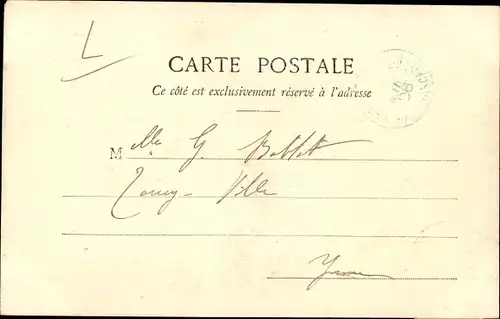 L
CARTE POSTALE
Ce côté est exclusivement réservé à l'adresse
Mlle G.
Toucy-Ville
Yonne